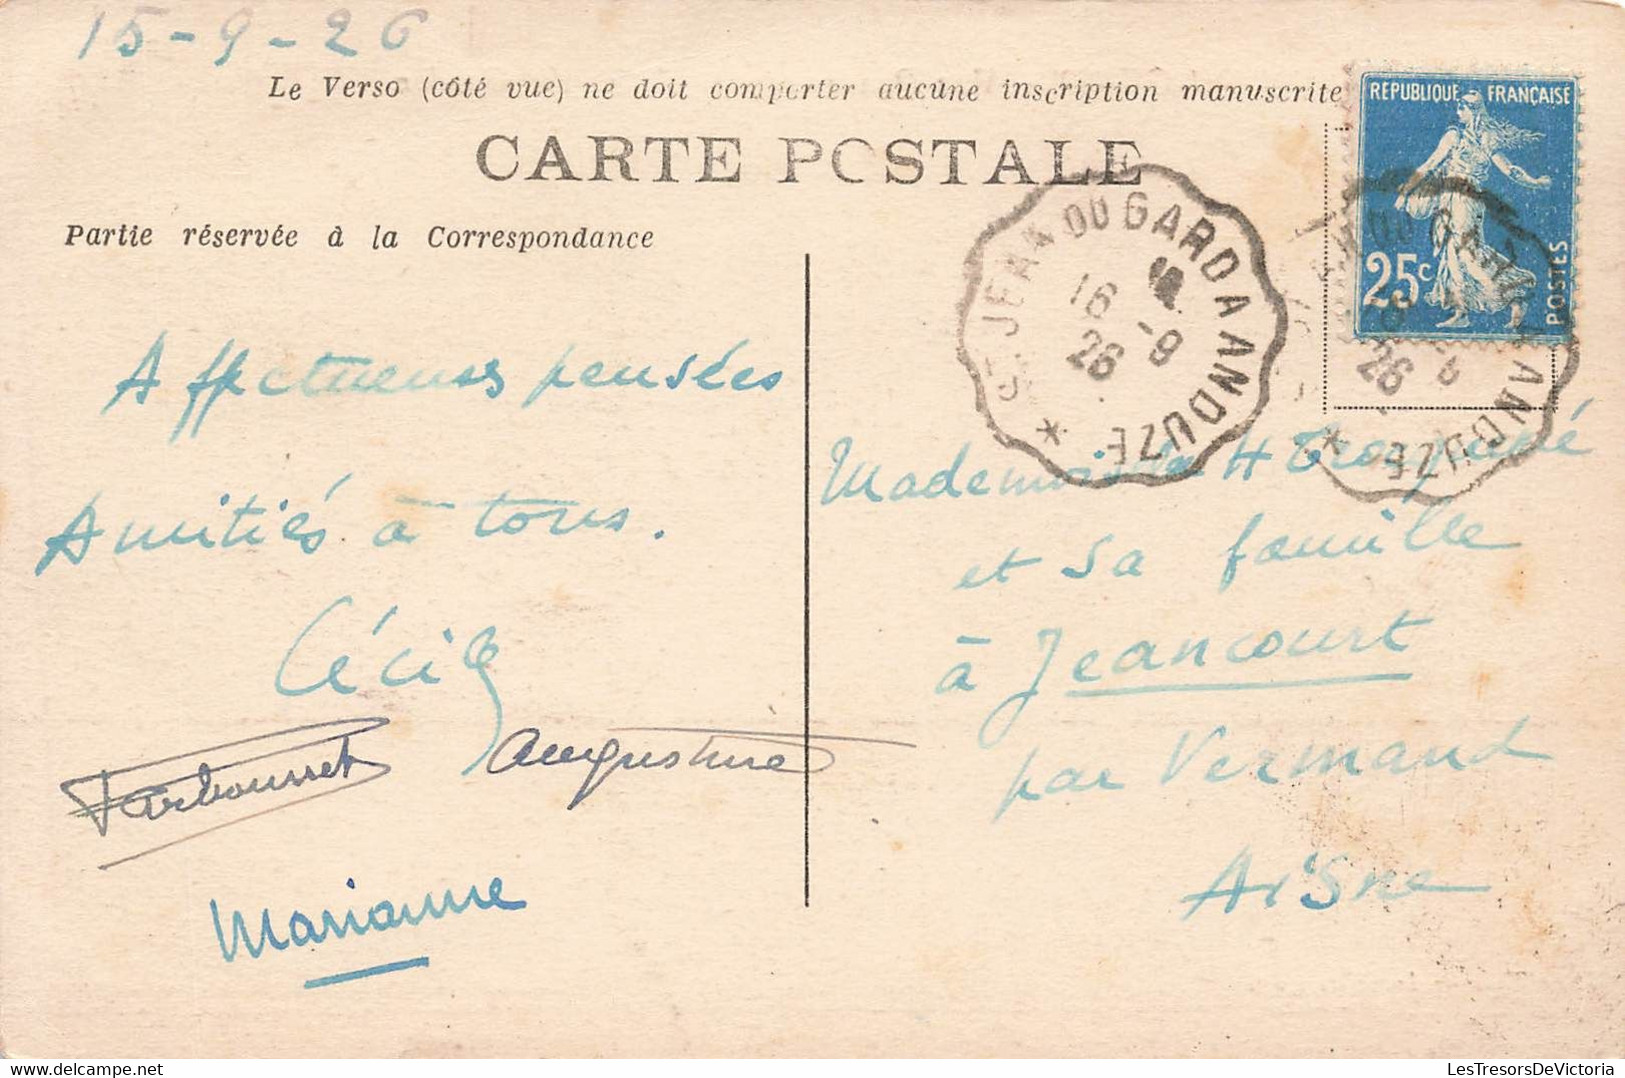 15-9-26
Le Verso (côté vue) ne doit comporter aucune inscription manuscrite
CARTE POSTALE
Partie réservée à la Correspondance
REPUBLIQUE FRANÇAISE
25c
POSTES
ST JEAN DU GARD A ANDUZE
16 -9
26
Affectueuses pensées
Amitiés à tous.
Cécile
Augustine
Marianne
Mademoiselle H
et sa famille
à Jeancourt
par Vermand
Aisne
LesTresorsDeVictoria